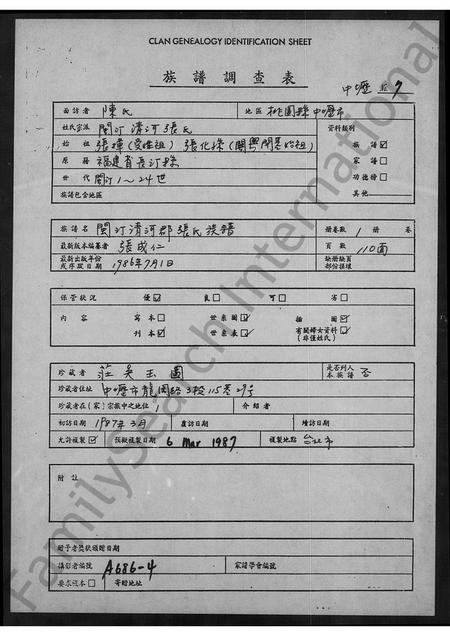 CLAN GENEALOGY IDENTIFICATION SHEET
族譜調查表
中壢 7
面訪者 陳氏 地區 桃園縣中壢市
姓氏宗派 閩汀清河張氏 資料類別
始祖 張揮(受姓祖) 張化孫(閩粵開基始祖) 族譜☑
原籍 福建省長汀縣 家譜□
世代 閩汀1~24世 功德榜□
族譜包含地區 其他
族譜名 閩汀清河郡張氏族譜 冊卷數 1 冊 卷
最新版本編纂者 張成仁 頁數 110面
最新出版年份或序跋日期 1986年7月1日 缺冊缺頁部份損壞
保管狀況 優☑ 良□ 可□ 劣□
內容 寫本□ 世系圖☑ 插圖☑
刊本☑ 世系表☑ 有關婦女資料☑(非僅姓氏)
珍藏者 莊吳玉圖 是否列入本族譜 否
珍藏者住址 中壢市龍岡路3段115巷29号
珍藏者在(家)宗族中之地位 介紹者
初訪日期 1987年3月 復訪日期 續訪日期
允許複製☑ 預擬複製日期 6 Mar 1987 複製地點 台北市
附註
贈予者獎狀頒贈日期
攝影者編號 A686-4 家譜學會編號
要求複本□ 寄贈地址
FamilySearch International